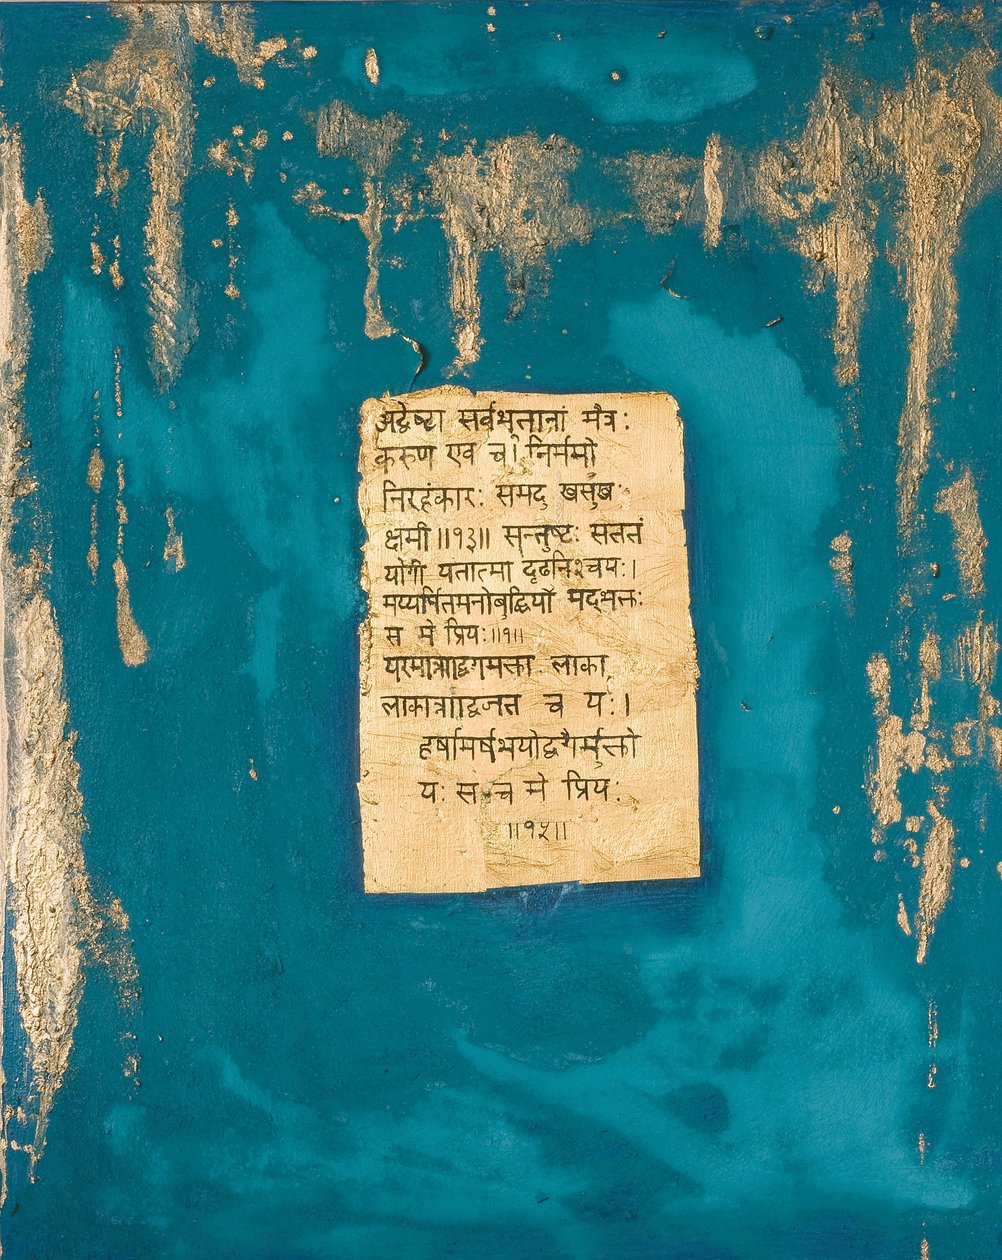 अद्वेष्टा सर्वभूतानां मैत्र:
करुण एव च। निर्ममो
निरहंकार: समदु खसुख:
क्षमी ॥१३॥ सन्तुष्ट: सततं
योगी यतात्मा दृढनिश्चय:।
मय्यर्पितमनोबुद्धियों मद्भक्त:
स मे प्रिय: ॥१॥
यस्मान्नाद्विगमक्ता लाका
लाकान्नाद्विजत च य:।
हर्षामर्षभयोद्वगैर्मुक्तो
य: स च मे प्रिय:
॥१५॥